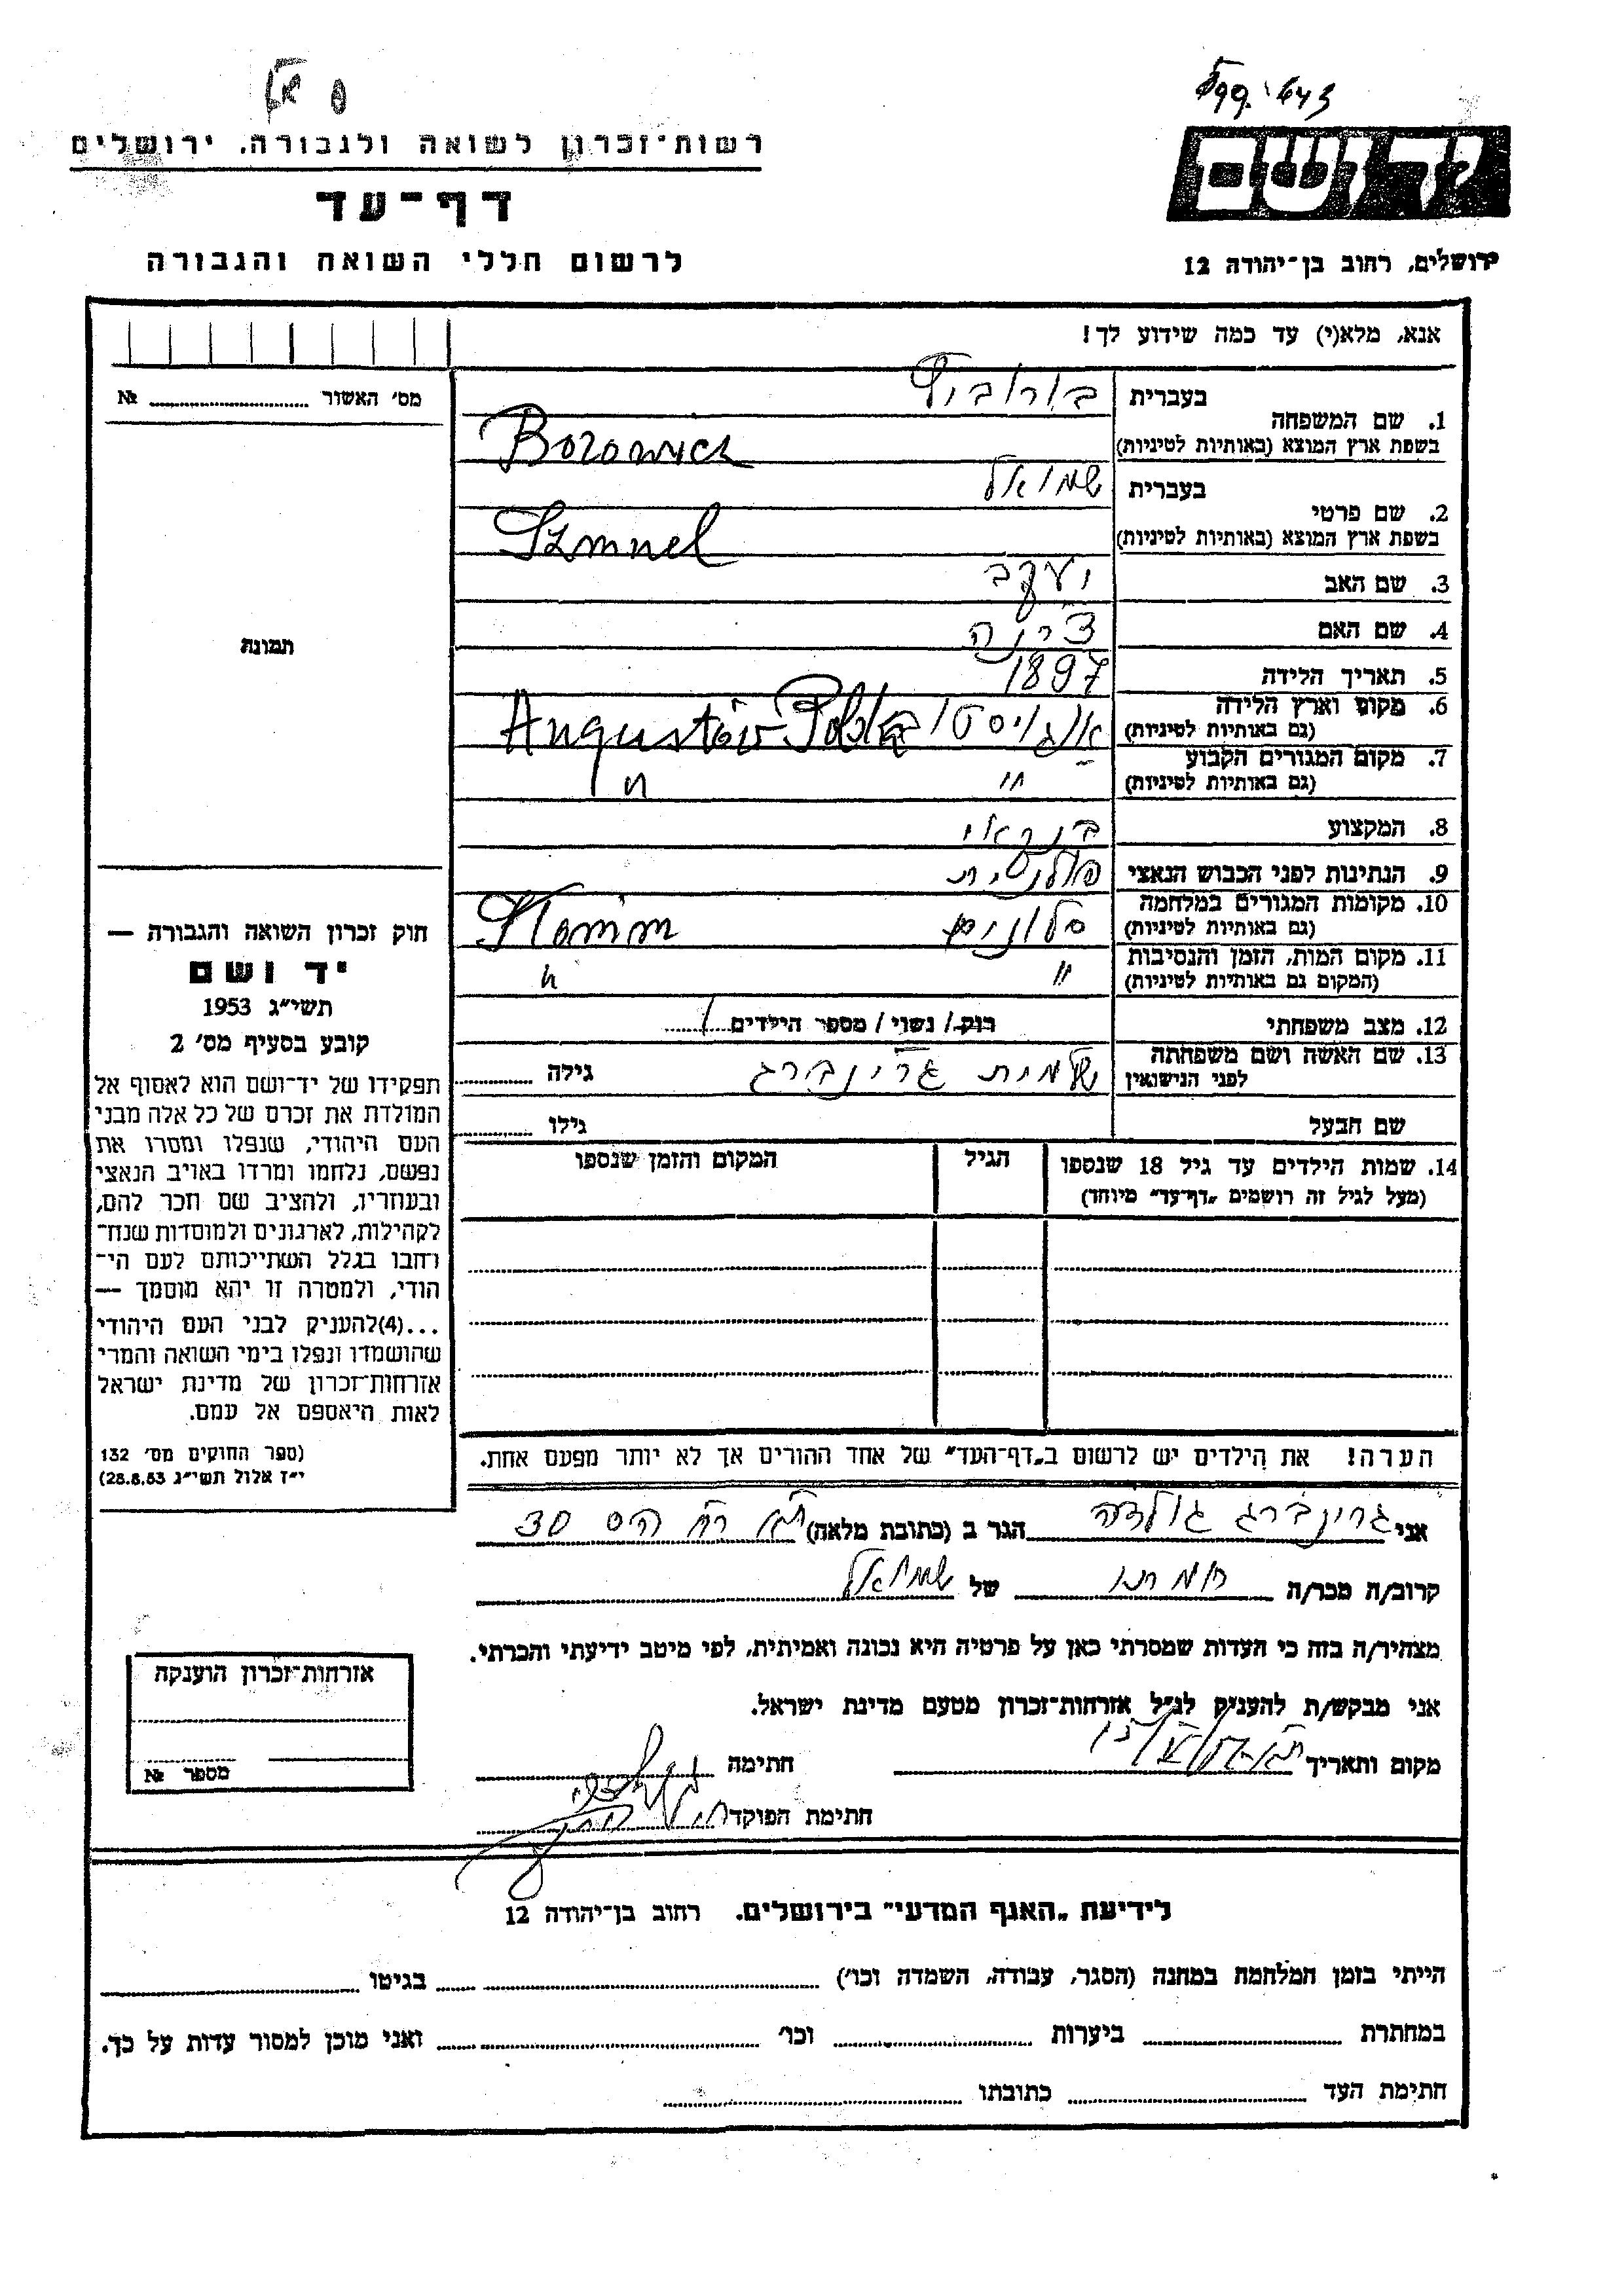 רשות־זכרון לשואה ולגבורה, ירושלים
דף־עד
לרשום חללי השואה והגבורה
יד ושם
ירושלים, רחוב בן־יהודה 12
אנא, מלא(י) עד כמה שידוע לך!
מס׳ האשור № 
תמונה
חוק זכרון השואה והגבורה —
יד ושם
תשי״ג 1953
קובע בסעיף מס׳ 2
תפקידו של יד־ושם הוא לאסוף אל
המולדת את זכרם של כל אלה מבני
העם היהודי, שנפלו ומסרו את
נפשם, נלחמו ומרדו באויב הנאצי
ובעוזריו, ולהציב שם וזכר להם,
לקהילות, לארגונים ולמוסדות שנח־
רבו בגלל השתייכותם לעם הי־
הודי, ולמטרה זו יהא מוסמך —
...(4)להעניק לבני העם היהודי
שהושמדו ונפלו בימי השואה והמרי
אזרחות־זכרון של מדינת ישראל
לאות היאספם אל עמם.
(ספר החוקים מס׳ 132
י״ז אלול תשי״ג 28.8.53)
בעברית בורוביץ
1. שם המשפחה
בשפת ארץ המוצא (באותיות לטיניות) Borowicz
בעברית שמואל
2. שם פרטי
בשפת ארץ המוצא (באותיות לטיניות) Szmuel
3. שם האב יעקב
4. שם האם
5. תאריך הלידה 1897
6. מקום וארץ הלידה
(גם באותיות לטיניות) Augustów
7. מקום המגורים הקבוע
(גם באותיות לטיניות) " "
8. המקצוע בנקאי
9. הנתינות לפני הכבוש הנאצי פולנית
10. מקומות המגורים במלחמה
(גם באותיות לטיניות) סלונים Słonim
11. מקום המות, הזמן והנסיבות
(המקום גם באותיות לטיניות) " "
12. מצב משפחתי רוק / נשוי / מספר הילדים 1
13. שם האשה ושם משפחתה
לפני הנישואין שלמית גרינברג גילה
שם הבעל גילו
14. שמות הילדים עד גיל 18 שנספו
(מעל לגיל זה רושמים „דף־עד״ מיוחד)
הגיל
המקום והזמן שנספו
הערה! את הילדים יש לרשום ב„דף־העד״ של אחד ההורים אך לא יותר מפעם אחת.
אני גרינברג גולדה הגר ב (כתובת מלאה) ת״א רח׳ הס 30
קרוב/ה מכר/ה של שמואל
מצהיר/ה בזה כי העדות שמסרתי כאן על פרטיה היא נכונה ואמיתית, לפי מיטב ידיעתי והכרתי.
אני מבקש/ת להעניק לנ״ל אזרחות־זכרון מטעם מדינת ישראל.
מקום ותאריך חתימה
חתימת הפוקד
אזרחות־זכרון הוענקה
מספר №
לידיעת „האגף המדעי״ בירושלים. רחוב בן־יהודה 12
הייתי בזמן המלחמה במחנה (הסגר, עבודה, השמדה וכו׳) בגיטו
במחתרת ביערות וכו׳ ואני מוכן למסור עדות על כך.
חתימת העד כתובתו